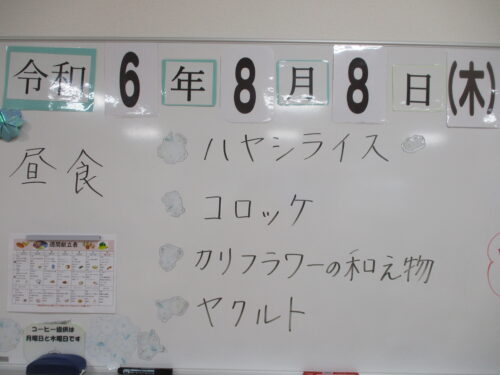 令和6年8月8日(木)
昼食
ハヤシライス
コロッケ
カリフラワーの和え物
ヤクルト
週間献立表
コーヒー提供は
月曜日と木曜日です